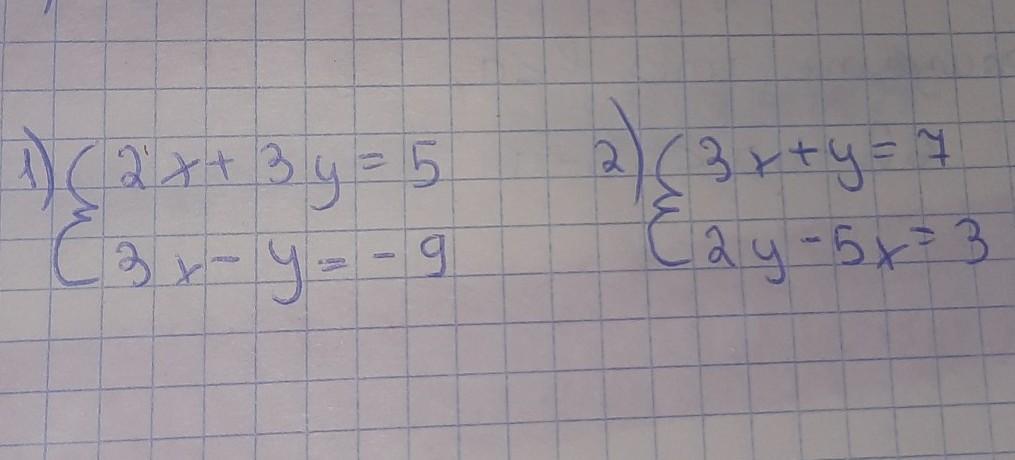 1) { 2x + 3y = 5
3x - y = - 9
2) { 3x + y = 7
2y - 5x = 3